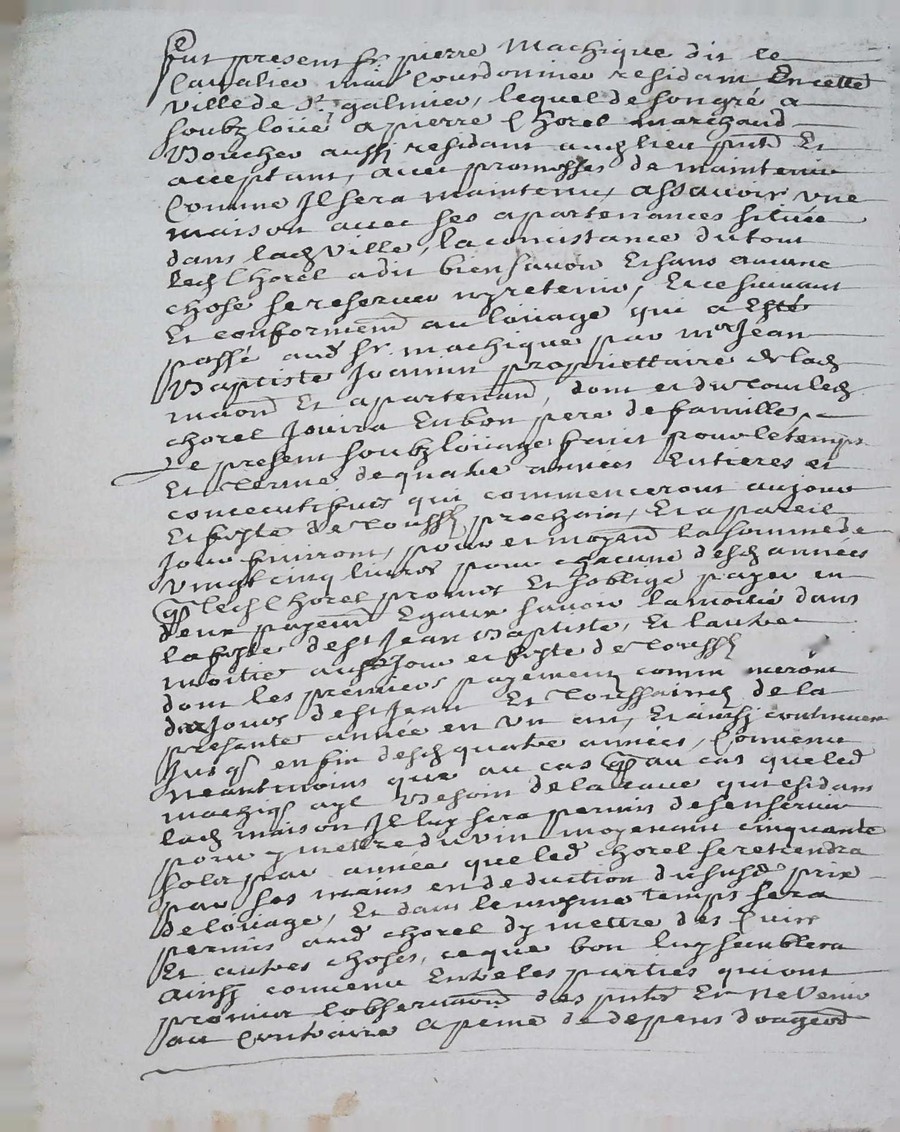 Fut present Sr pierre Machique dit le
Cavalier mai cordonnier residant En cette
ville de St galmier, lequel de son gré a
soubz loüé a pierre Chorel marchand
Boucher aussi residant aud lieu pnt Et
acceptant, avec promesses de maintenir
Comme Il sera maintenu, assavoir une
maison avec ses apartenances située
dans lad Ville, la concistance du tout
led Chorel a dit bien savoir Et sans aucune
chose se reserver ny retenir, Et ce suivant
Et conformemt au loüage qui a Esté
passé aud Sr. machique par mr Jean
Baptiste Joannin propriettaire de lad
maison Et apartenan, dont et du tout led
Chorel Jouira En bon pere de famille
Le present soubz loüage fait pour le temps
Et terme de quatre années Entieres et
concecutives qui commenceront au jour
Et feste de Toussts prochain, Et a pareil
Jour finiront, pour et moyent la somme de
vingt cinq livres pour chacune desd années
q led Chorel promet Et soblige payer en
deux payemt Egaux savoir la moitié dans
la feste de St Jean Baptiste, Et lautre
moitié aussi Jour et feste de Toussts
dont les premiers payements commenceront
aux Jours de St Jean Et Toussaincts de la
presente année en un an, Et ainsi continuer
Jusqs en fin desd quatre années, Convenu
neantmoins que au cas q au cas que led
machiq aye Besoin de la cave qui est dans
lad maison Il luy sera permis de sen servir
pour y mettre du vin moyenant cinquante
sols par année que led Chorel se retiendra
par ses mains en deduction du susd prix
de loüage, Et dans le mesme temps sera
permis aud Chorel dy mettre des Cuirs
Et autres choses, ce que bon luy semblera
Ainsy convenu Entre les parties qui ont
promis lobservaon des pntes Et ne Venir
au Contraire a peine de depens domages